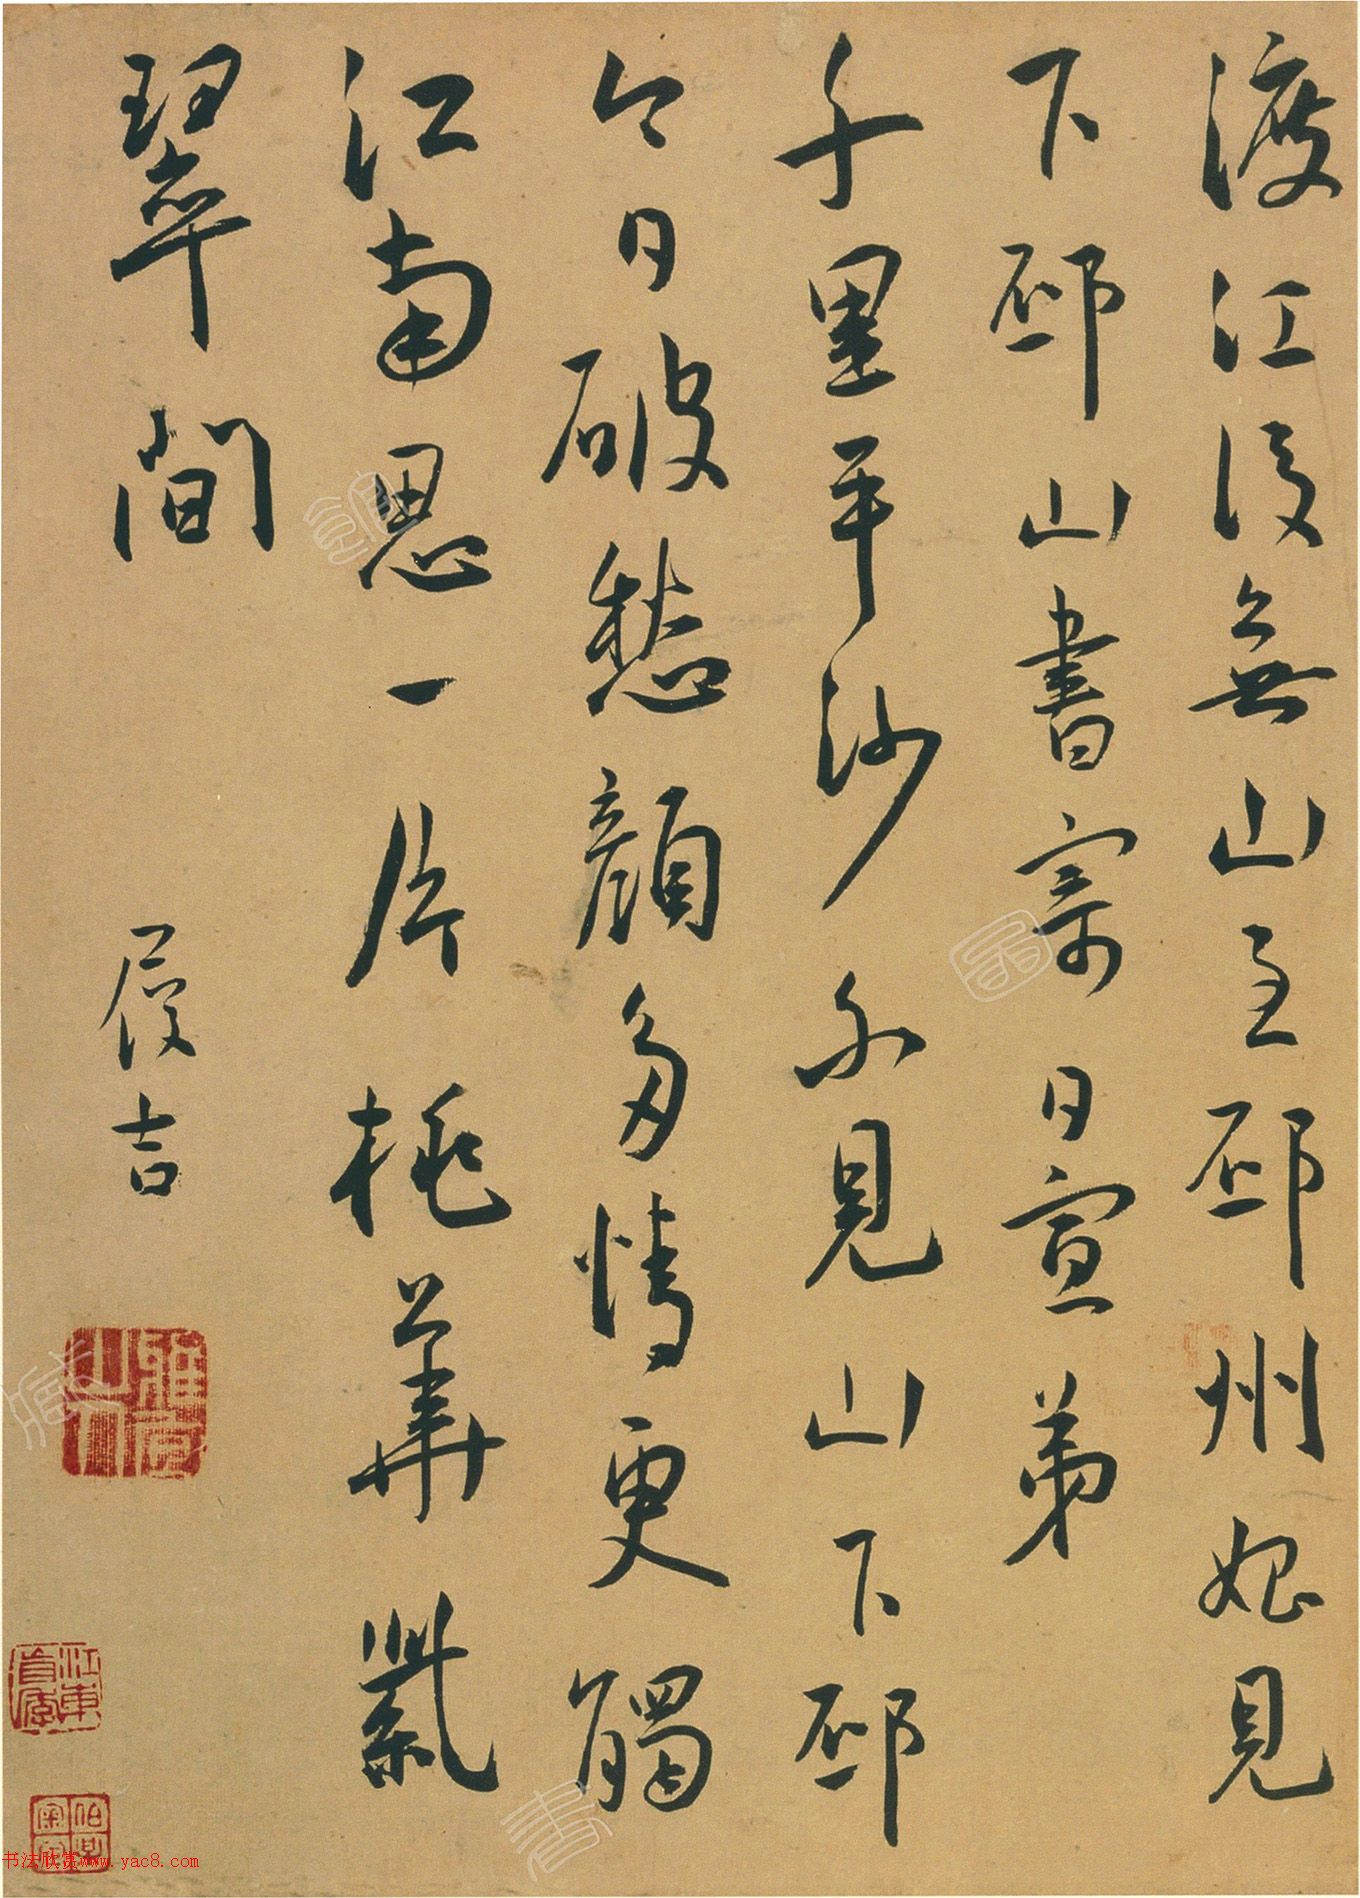 渡江後無山至邳州始見
下邳山書寄日宣弟
千里平沙不見山下邳
今日破愁顏多情更觸
江南思一片桃華紫
翠間
履吉
江東
书法欣赏www.yac8.com